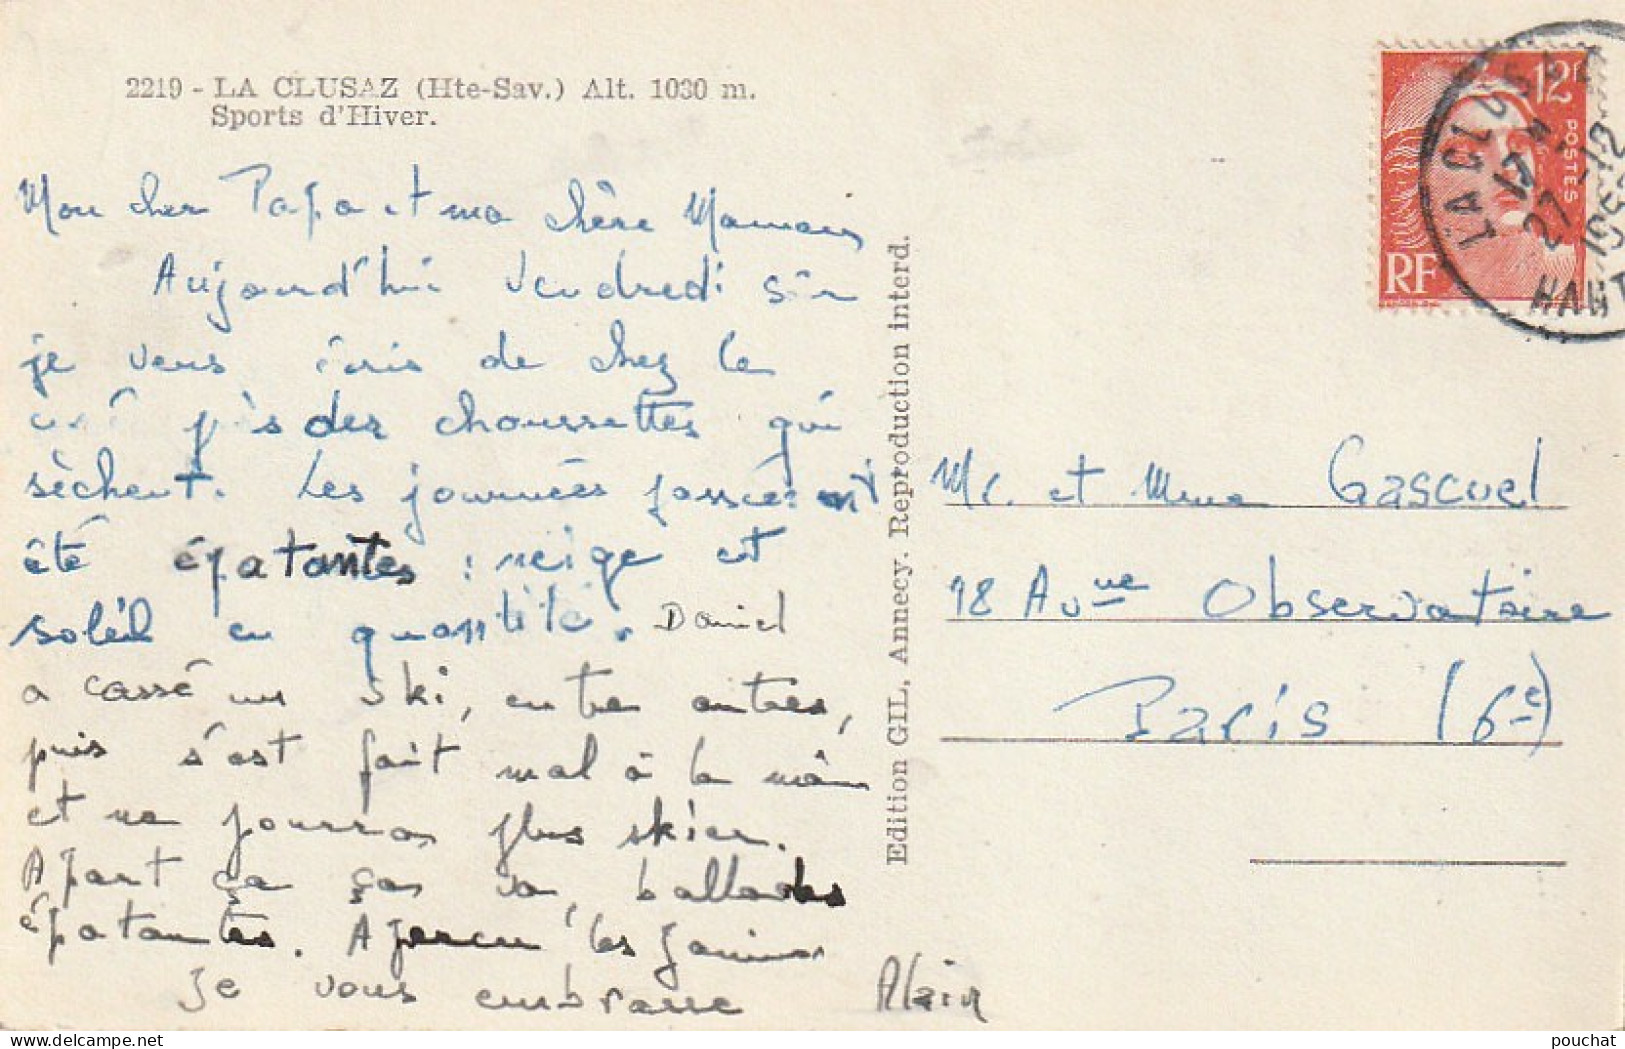 2219 - LA CLUSAZ (Hte-Sav.) Alt. 1030 m.
Sports d'Hiver.
Mon cher Papa et ma chère Maman
Aujourd'hui Vendredi soir
je vous écris de chez le
curé près des chaussettes qui
sèchent. Les journées passées ont
été épatantes : neige et
soleil en quantité. Daniel
a cassé un ski, entre autres,
puis s'est fait mal à la main
et ne pourra plus skier.
Apart ça ças va, ballades
épatantes. Aperçu les
Je vous embrasse Alain
Edition GIL, Annecy. Reproduction interd.
12f
POSTES
RF
LA CLUSAZ
17 H
27 -12
195
HAUT
Mr. et Mme Gascuel
18 Avnue Observatoire
Paris (6e)
pouchat
delcampe.net